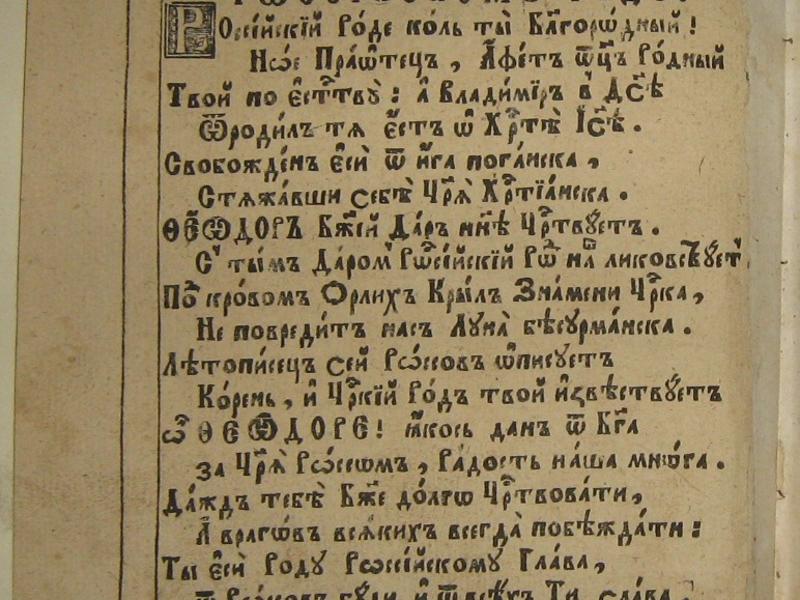 Росі́йскїй Ро́де коль ты̀ Бл҃горѡ́дный!
Нѡ́е Пра́ѿтецъ, А҆фе́тъ ѿц҃ъ Ро́дный
Твой по є҆сте́ствꙋ: а҆ Владимі́ръ в Дс҃ѣ
Ѿроди́лъ тѧ є҆́стъ ѡ҆ Хрⷭ҇тѣ̀ І҆с҃ѣ.
Свобожде́нъ є҆сѝ ѿ и҆́га пога́нска,
Стѧжа́вши себѣ̀ Цр҃ѧ̀ Хрⷭ҇тїа́нска.
Ѳео́дѡръ Бж҃ій Да́ръ нн҃ѣ Црⷭ҇твꙋетъ.
С ты́мъ Да́ром Рѡссі́йскїй Рѡⷣ ликовствꙋет,
Поⷣ кро́вомъ Орлихъ Кры́лъ Зна́мени Црⷭ҇ка,
Не повреди́тъ насъ Лꙋна̀ бѣсꙋрма́нска.
Лѣтопи́сецъ сей Рѡ́ссовъ ѡ҆писꙋетъ
Ко́рень, и҆ Црⷭ҇кїй Ро́дъ твой и҆звѣствꙋетъ
Ѽ ѲЕѠДОРЕ! ꙗ҆́кось данъ ѿ Бг҃а
за Цр҃ѧ̀ Рѡ́ссѡмъ, Ра́дость на́ша мнѡ́га.
Да́ждъ тебѣ̀ Бж҃е до́лгѡ Црⷭ҇твова́ти,
А҆ врагѡ́въ всѧ́кихъ всегда̀ побѣжда́ти:
Ты̀ є҆сѝ Родꙋ Рѡссі́йскомꙋ Гла́ва,
бꙋди, и҆ Ти сла́ва.